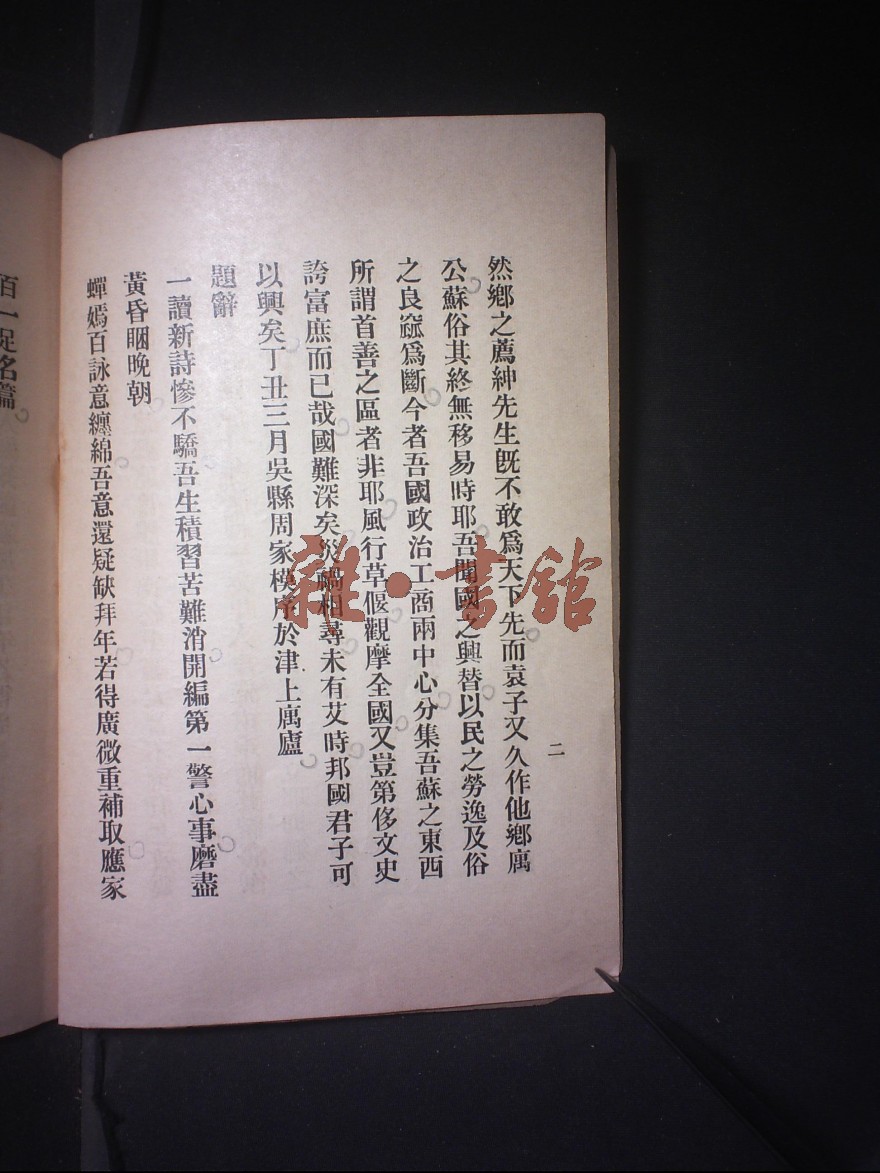 二
然鄉之薦紳先生既不敢爲天下先而袁子又久作他鄉寓
公蘇俗其終無移易時耶吾聞國之興替以民之勞逸及俗
之良窳爲斷今者吾國政治工商兩中心分集吾蘇之東西
所謂首善之區者非耶風行草偃觀摩全國又豈第侈文史
誇富庶而已哉國難深矣災禍相尋未有艾時邦國君子可
以興矣丁丑三月吳縣周家模序於津上寓廬
題辭
一讀新詩慘不驕吾生積習苦難消開編第一警心事磨盡
黃昏睏晚朝
蟬嫣百詠意纏綿吾意還疑缺拜年若得廣微重補取應家
百一足名篇
雜·書館